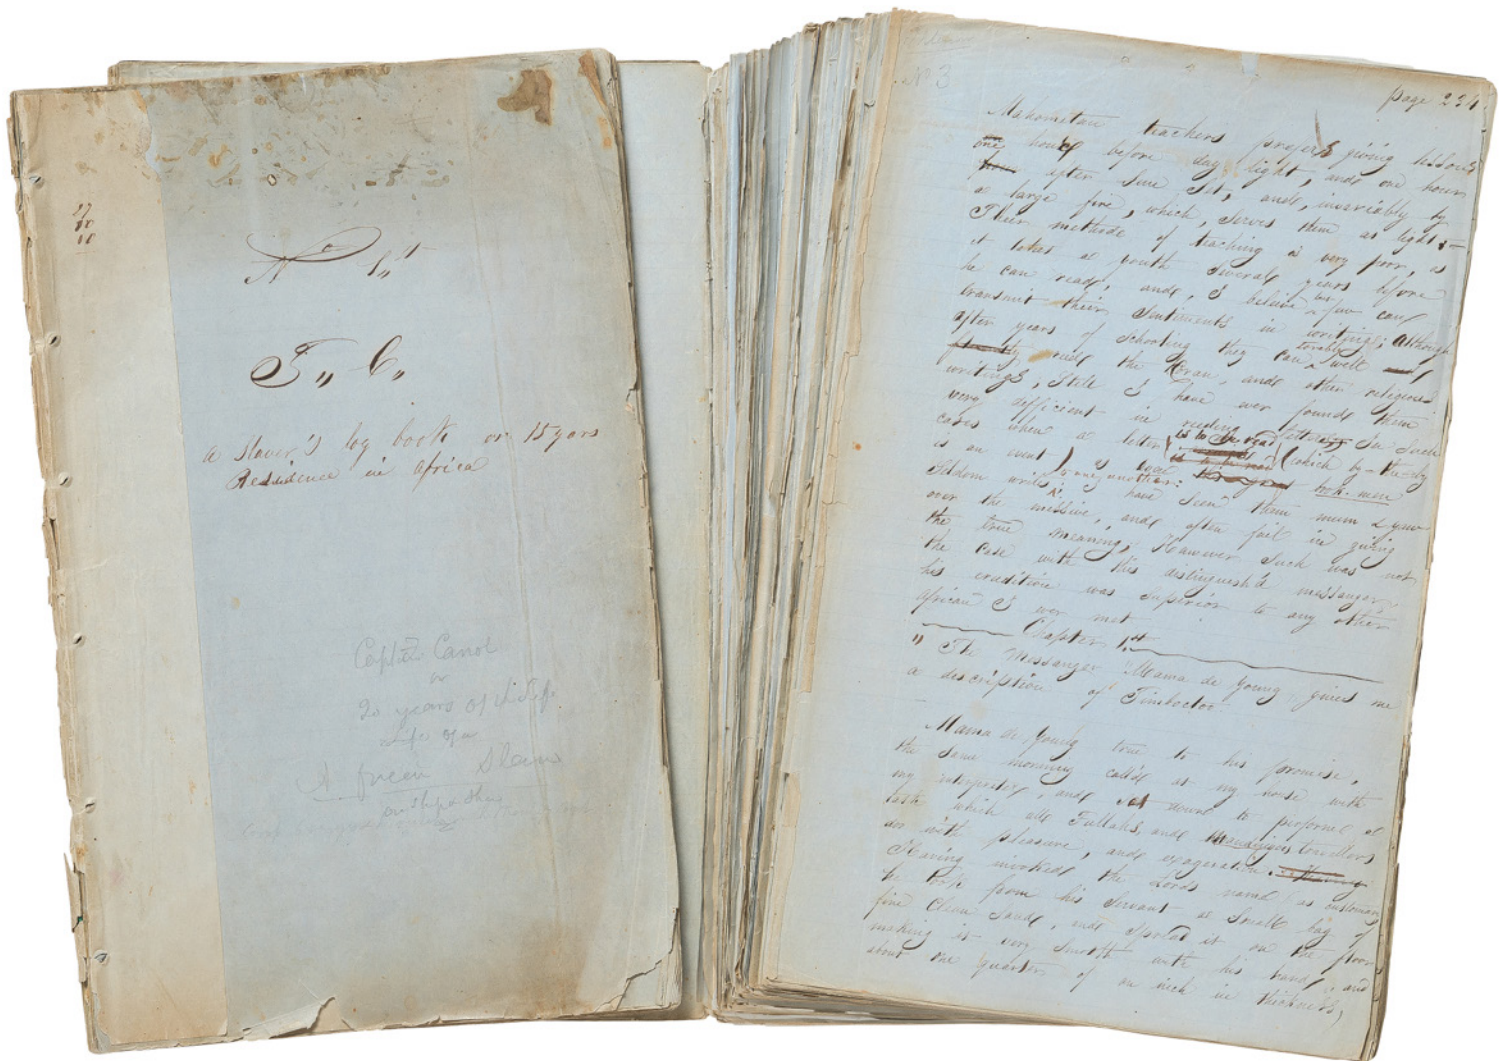 27
10
10
No 1st
T,, C,,
a Slaver's log book or 15 years
Residence in Africa
Capten Canot
or
20 years of
Life of a
African Slaver
on Ship & Shore
No 3
page 234
Mahometan teachers prefers giving lessons
one hour before day light, and one hour
after Sun Set, and, invariably by
a large fire, which, serves them as light
Their methode of teaching is very poor, as
it takes a youth several years before
he can read, and, I believe but few can
transmit their Sentiments in writing; Although
after years of Schooling they can torably well
read the Koran, and other religious
writings, Still I have ever found them
very defficient in reeding letters, In Such
cases when a letter is to be read (which by-the-by
is an event) book-men
Seldom write to one another: I have Seen them mum & yaw
over the missive, and often fail in giving
the true meaning; However Such was not
the case with this distinguesh'd messanger,
his erudition was Superior to any other
African I ever met
Chapter 1st
" The Messanger "Mama de Young, gives me
a description of Timboctoo
Mama de Young true to his promise,
the Same morning call'd at my house with
my interpreter, and Set down to performe a
task which all Fullahs, and Mandingoes travellors
do with pleasure, and exageration.
Having invoked the Lords name, as customary
he took from his Servant a Small bag of
fine Clean Sand, and Spread it on the floor
making it very Smooth with his hand, and
about one quarter of an inch in thickness,